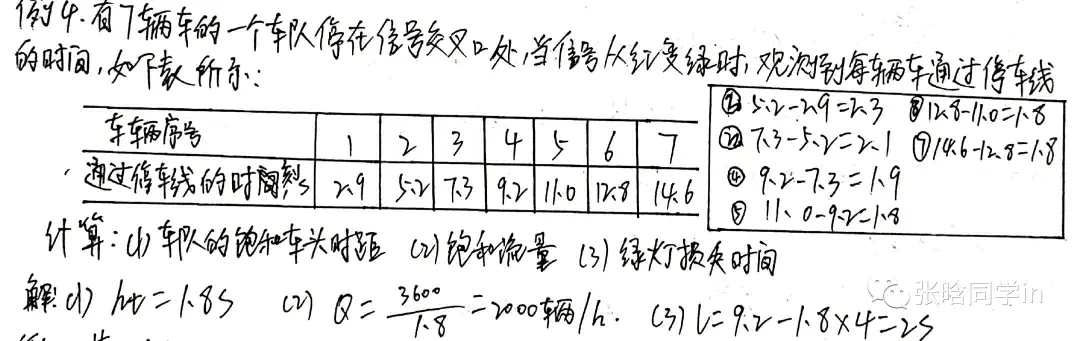 例4.有7辆车的一个车队停在信号交叉口处,当信号从红变绿时,观测到每辆车通过停车线
的时间,如下表所示:
车辆序号 1 2 3 4 5 6 7
通过停车线的时刻s 2.9 5.2 7.3 9.2 11.0 12.8 14.6
② 5.2-2.9=2.3 ⑥ 12.8-11.0=1.8
③ 7.3-5.2=2.1 ⑦ 14.6-12.8=1.8
④ 9.2-7.3=1.9
⑤ 11.0-9.2=1.8
计算:(1)车队的饱和车头时距 (2)饱和流量 (3)绿灯损失时间
解:(1) ht=1.8s (2) Q=3600/1.8=2000辆/h. (3) L=9.2-1.8×4=2s
张晗同学in